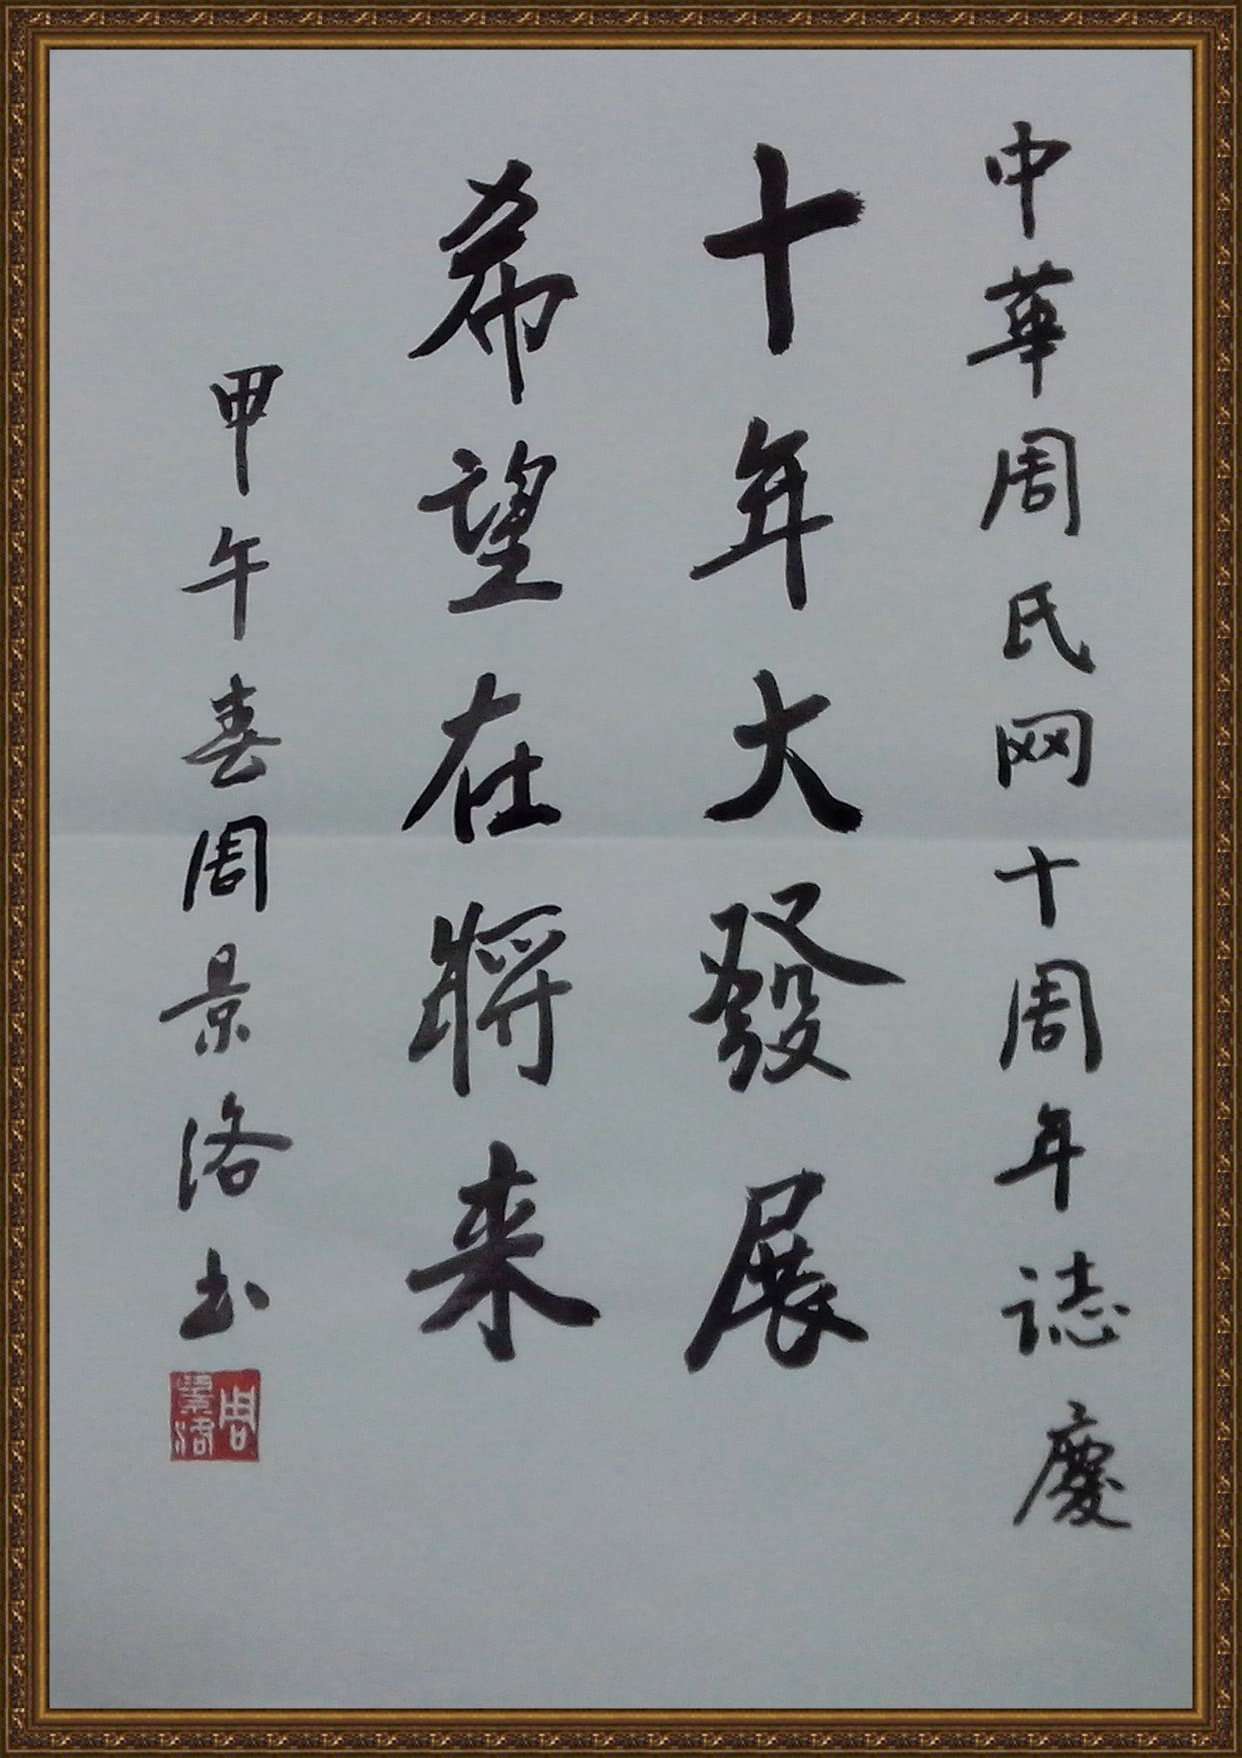 中華周氏网十周年誌慶
十年大發展
希望在將来
甲午春周景洛书
周景洛